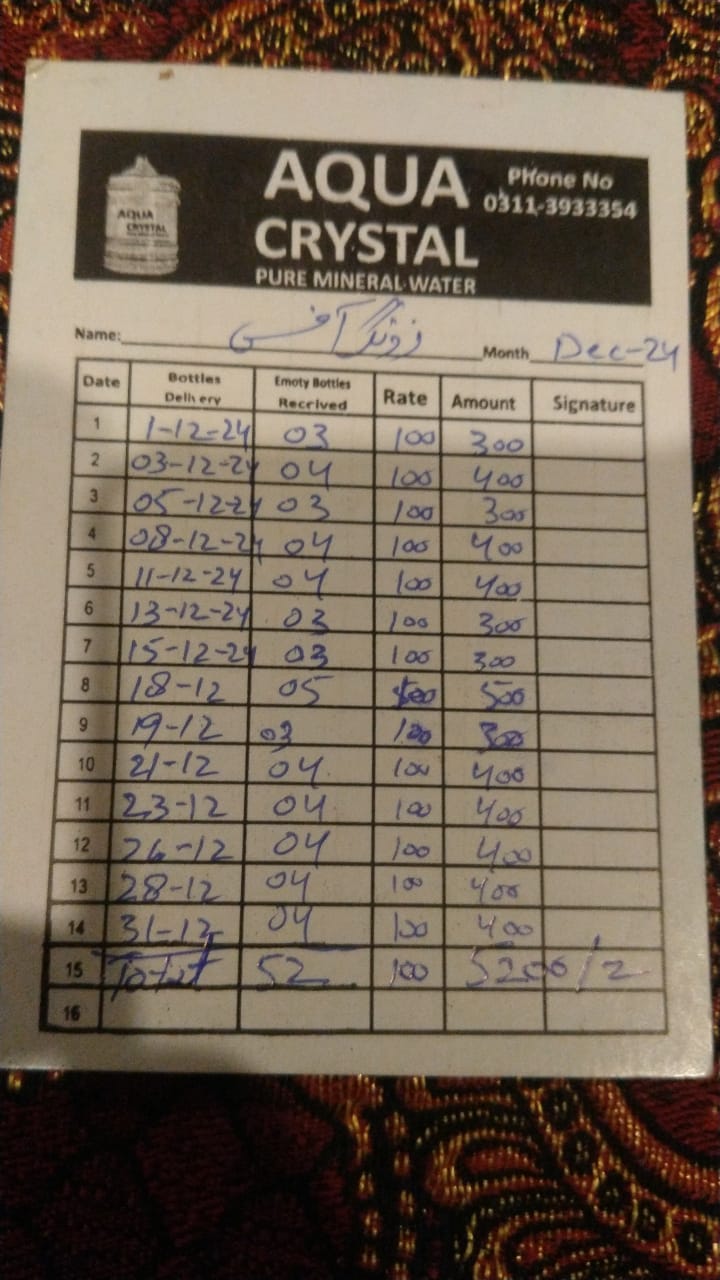 AQUA
CRYSTAL
AQUA
CRYSTAL
PURE MINERAL WATER
Phone No
0311-3933354
Name: Month Dec-24
Date Bottles Delivery Emoty Bottles Recrived Rate Amount Signature
1 1-12-24 03 100 300
2 03-12-24 04 100 400
3 05-12-24 03 100 300
4 08-12-24 04 100 400
5 11-12-24 04 100 400
6 13-12-24 03 100 300
7 15-12-24 03 100 300
8 18-12 05 100 500
9 19-12 03 100 300
10 21-12 04 100 400
11 23-12 04 100 400
12 26-12 04 100 400
13 28-12 04 100 400
14 31-12 04 100 400
15 Total 52 100 5200/2
16